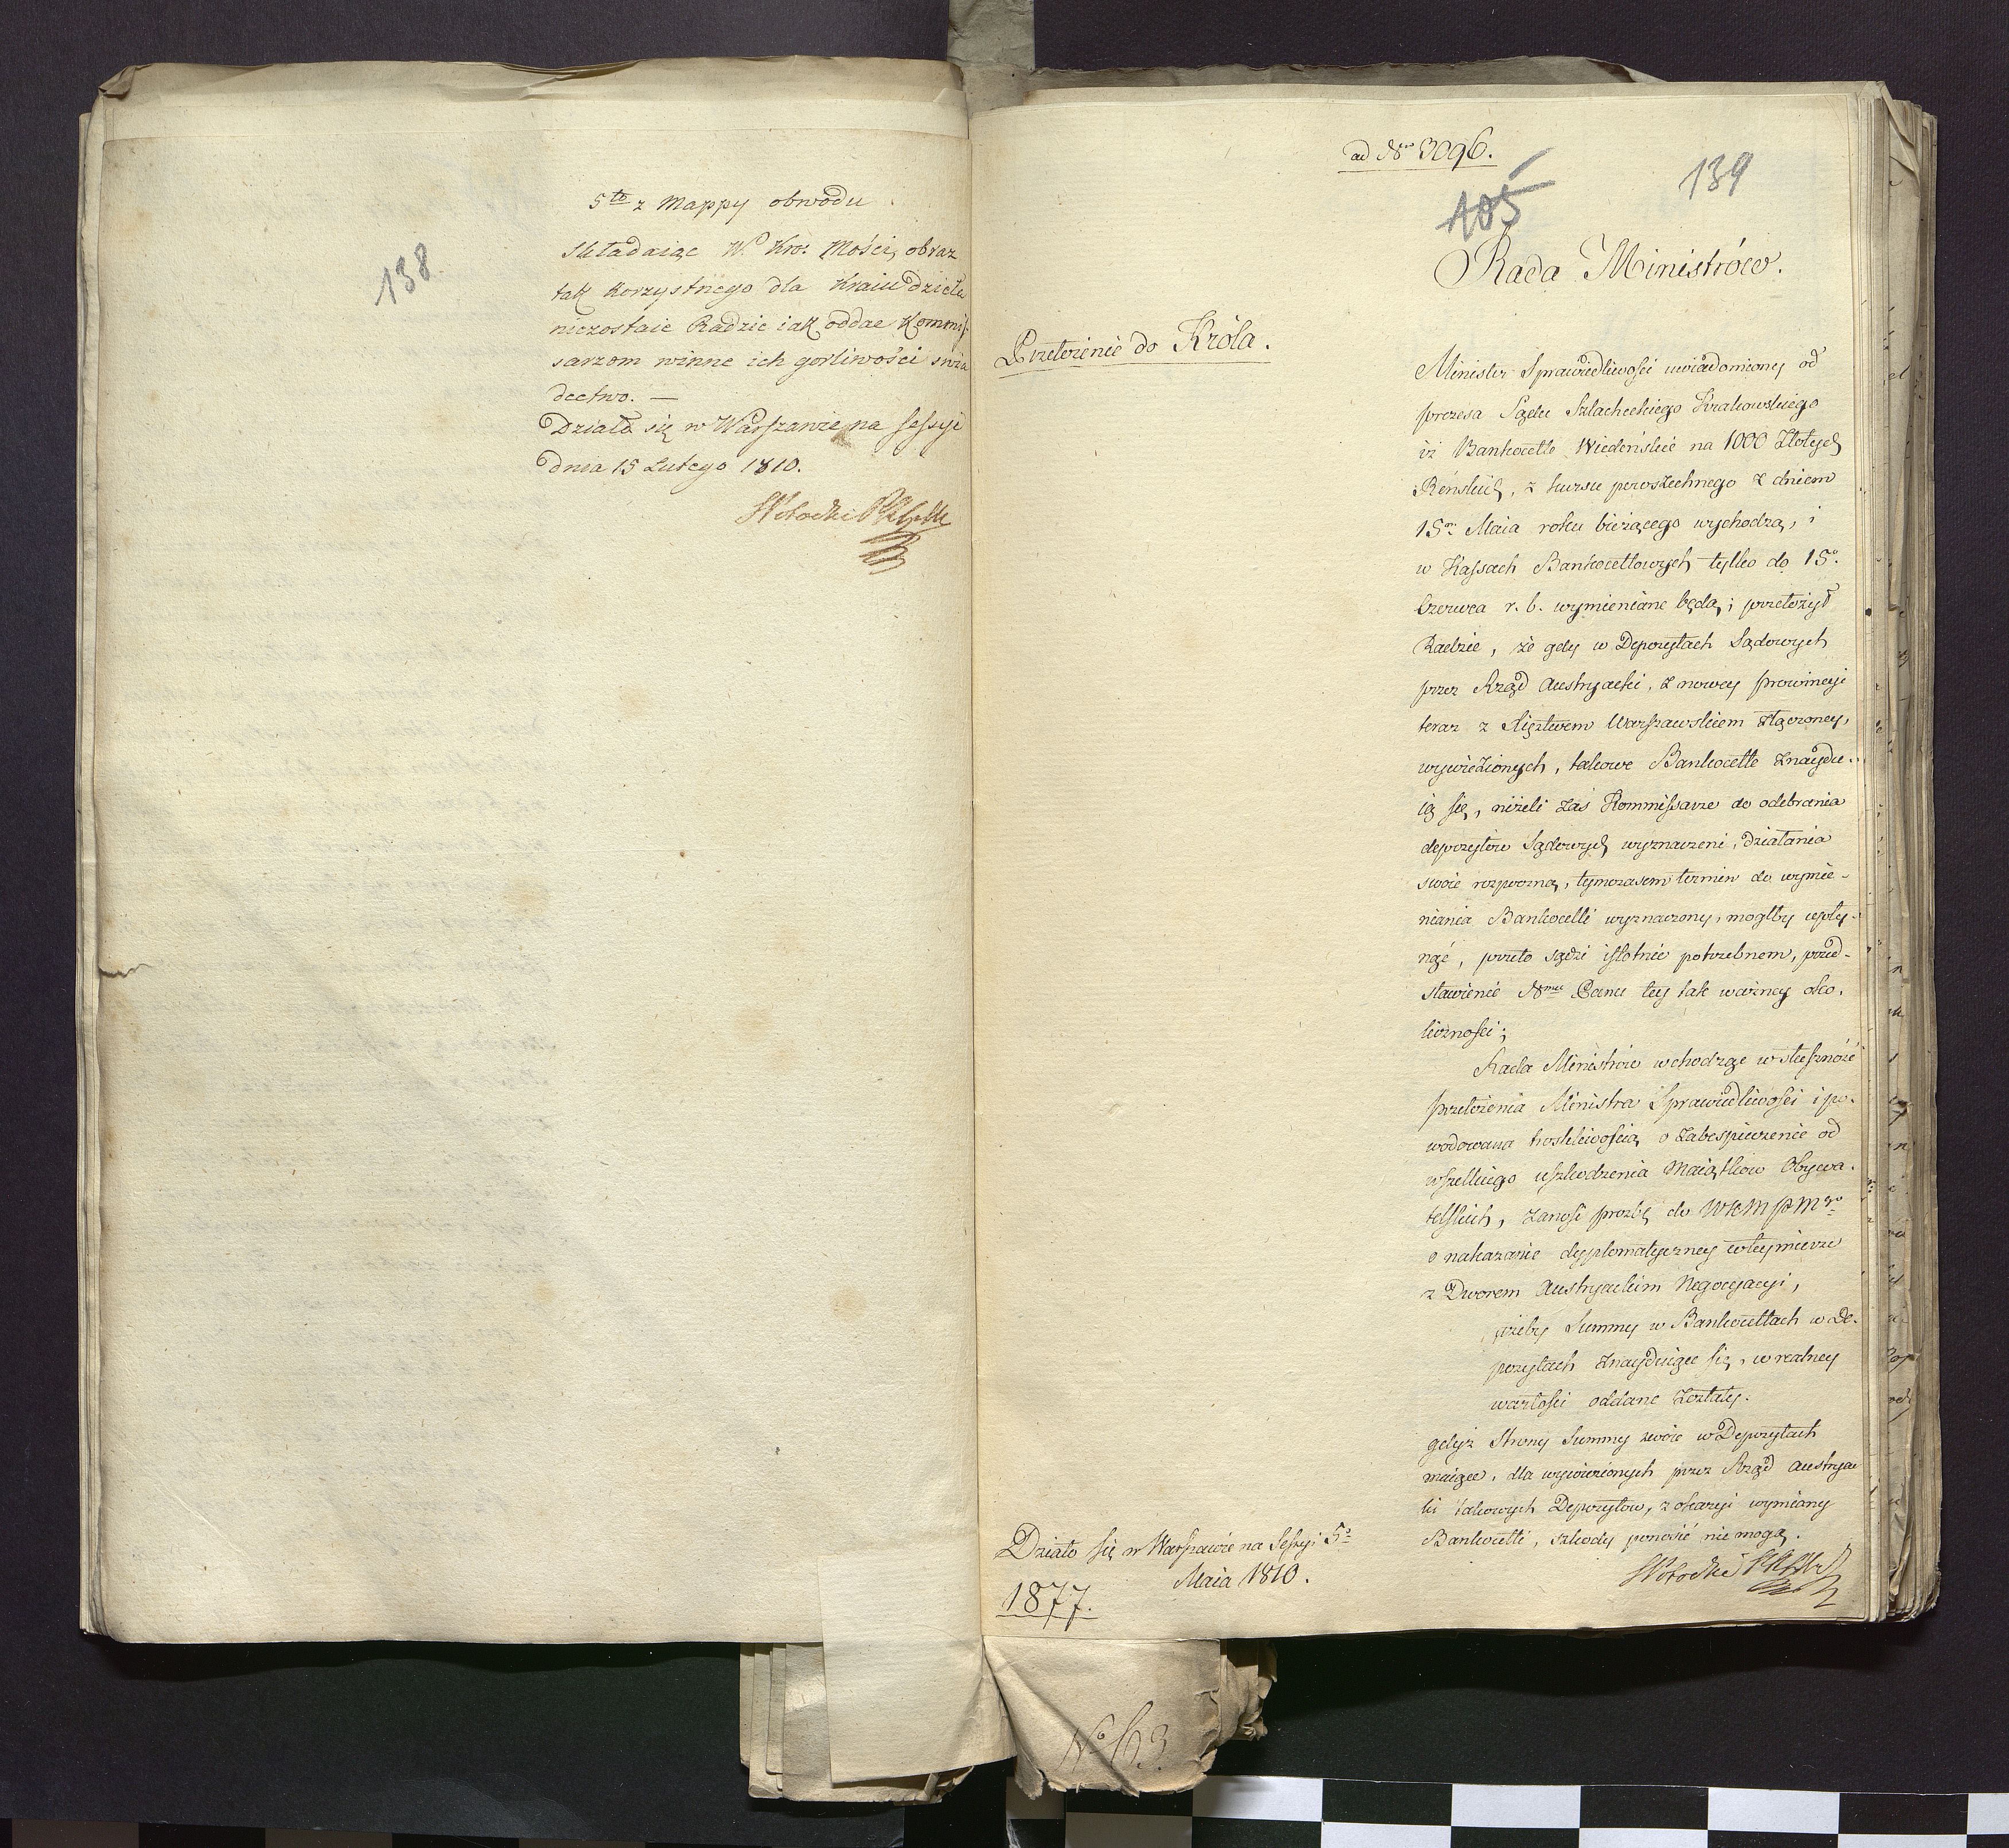 138
5to z Mappy obwodu
Składaiąc W. Kro: Mości, obraz
tak korzystnego dla Kraiu dzieła
niezostaie Radzie iak oddać Kommis-
sarzom winne ich gorliwości świa
dectwo. —
Działo się w Warszawie na Sessyi
Dnia 15 Lutego 1810.
ad Nrm 3096.
105
139
Rada Ministrów.
Przełożenie do Króla.
Minister Sprawiedliwości uwiadomiony od
prezesa Sądu Szlacheckiego Krakowskiego
iż Bankocetle Wiedeńskie na 1000 Złotych
Reńskich, z kursu powszechnego z dniem
15m Maia roku bieżącego wychodzą, i
w Kassach Bankocetlowych tylko do 15o
Czerwca r. b. wymieniane będą, i przełożył
Radzie, że gdy w Depozytach Sądowych
przez Rząd Austryacki, z nowey prowincyi
teraz z Xięstwem Warszawskiem złączoney,
wywiezionych, takowe Bankocetle znaydu-
ią się, niżeli zaś Kommissarze do odebrania
depozytów Sądowych wyznaczeni, działania
swoie rozpoczną, tymczasem termin do wymie-
niania Bankocetli wyznaczony, mogłby upły-
nąć, przeto sądzi istotnie potrzebnem, przed-
stawienie Nmu Panu tey tak ważney oko-
liczności;
Rada Ministrów wchodząc w słuszność
przełożenia Ministra Sprawiedliwości i po-
wodowana troskliwością o zabespieczenie od
wszelkiego uszkodzenia Maiątków Obywa-
telskich, zanosi prozbę do WKMPMgo
o nakazanie dyplomatyczney wteymierze
z Dworem Austryackim Negocyacyi,
iżeby Summy w Bankocetlach w De-
pozytach znayduiące się, w realney
wartości oddane zostały.
gdyż Strony Summy swoie w Depozytach
maiące, dla wywiezionych przez Rząd Austryac
ki takowych Depozytów, z okazyi wymiany
Bankocetli, szkody ponosić nie mogą.
Działo się w Warszawie na Sessyi 5o
Maia 1810.
1877.
No 63